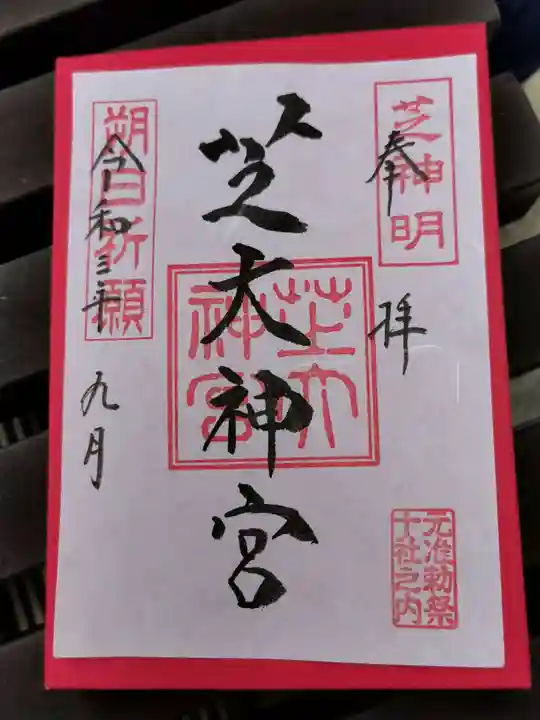 奉拝
芝神明
芝大神宮
芝大
神宮
元准勅祭
十社之内
朔日祈願
令和三年九月